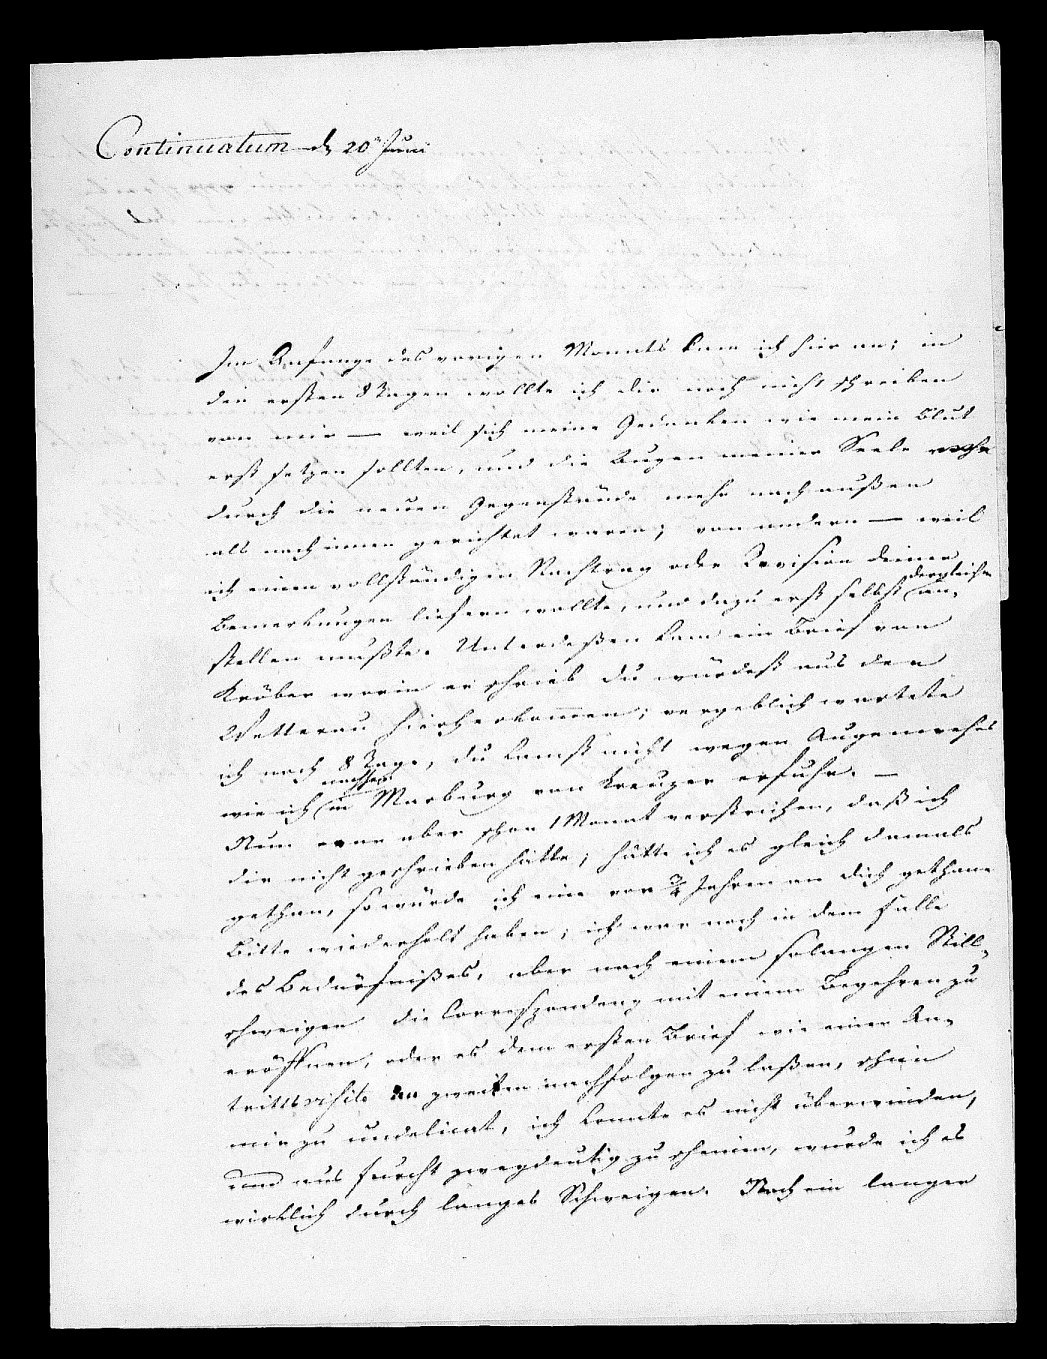 Continuatum d. 20 Juni
Im Anfange des vorigen Monats kam ich hier an; in
den ersten 8 Tagen wollte ich dir noch nicht schreiben
von mir — weil sich meine Gedanken wie mein Blut
erst setzen sollten, und die Augen meiner Seele
durch die neuen Gegenstände mehr nach außen
als nach innen gerichtet waren; von andern — weil
ich einen vollständigen Nachtrag oder Revision deiner
Bemerkungen liefern wollte, und dazu erst selbst dergleichen an-
stellen mußte. Unterdeßen kam ein Brief von
Kröber worin er schrieb du würdest aus der
Wetterau hierherkommen; vergeblich wartete
ich noch 8 Tage, du kamst nicht wegen Augenwehes
wie ich nachher in Marburg von Kreuzer erfuhr. —
Nun war aber schon 1 Monat verstrichen, daß ich
dir nicht geschrieben hätte; hätte ich es gleich damals
gethan, so würde ich eine vor ¾ Jahren an dich gethane
Bitte wiederholt haben; ich war noch in dem Falle
des Bedürfnißes, aber nach einem so langen Still-
schweigen die Correspondenz mit einem Begehren zu
eröffnen, oder es dem ersten Brief wie einer An-
trittsvisite zweiten nachfolgen zu laßen, schien
mir zu undelicat, ich konnte es nicht überwinden,
und aus Furcht zweydeutig zu scheinen, wurde ich es
wirklich durch langes Schweigen. Noch ein langer